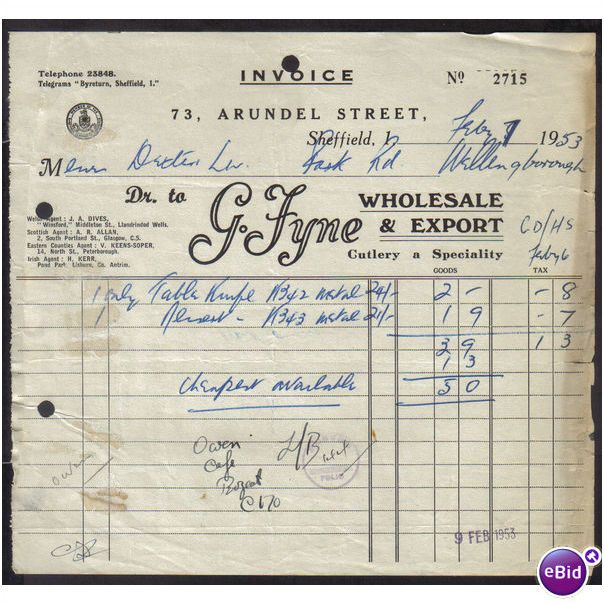 Telephone 25848.
Telegrams "Byreturn, Sheffield, 1."
INVOICE
No 2715
73, ARUNDEL STREET,
Sheffield, 1 Feby 7 1953
Messrs Dexter Ltd. Park Rd Wellingborough
Dr. to
G. Fyne
WHOLESALE
& EXPORT
Cutlery a Speciality
CD/HS
Feby 6
Welsh Agent: J. A. DIVES,
"Winsford," Middleton St., Llandrindod Wells.
Scottish Agent: A. R. ALLAN,
2, South Portland St., Glasgow, C.5.
Eastern Counties Agent: V. KEENS-SOPER,
14, North St., Peterborough.
Irish Agent: H. KERR,
Pond Park, Lisburn, Co. Antrim.
GOODS TAX
1 only Table Knife KB42 metal 24/- 2 - - 8
1 Dessert - KB43 metal 21/- 1 9 - 7
3 9 1 3
1 3
5 0
cheapest available
Owen
Cafe
Bozeat
C170
H/B
9 FEB 1953
eBid